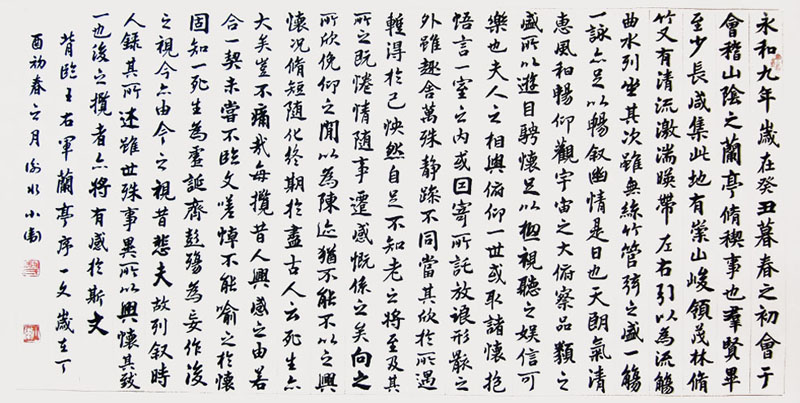 永和九年歲在癸丑暮春之初會于
會稽山陰之蘭亭脩稧事也羣賢畢
至少長咸集此地有崇山峻領茂林脩
竹又有清流激湍暎帶左右引以為流觴
曲水列坐其次雖無絲竹管弦之盛一觴
一詠亦足以暢叙幽情是日也天朗氣清
惠風和暢仰觀宇宙之大俯察品類之
盛所以遊目騁懷足以極視聽之娛信可
樂也夫人之相與俯仰一世或取諸懷抱
悟言一室之內或因寄所託放浪形骸之
外雖趣舍萬殊靜躁不同當其欣於所遇
暫得於己怏然自足不知老之將至及其
所之既惓情隨事遷感慨係之矣向之
所欣俛仰之間以為陳迹猶不能不以之興
懷況脩短隨化終期於盡古人云死生亦
大矣豈不痛哉每攬昔人興感之由若
合一契未嘗不臨文嗟悼不能喻之於懷
固知一死生為虛誕齊彭殤為妄作後
之視今亦由今之視昔悲夫故列叙時
人錄其所述雖世殊事異所以興懷其致
一也後之攬者亦將有感於斯文
背臨王右軍蘭亭序一文歲在丁
酉初春之月